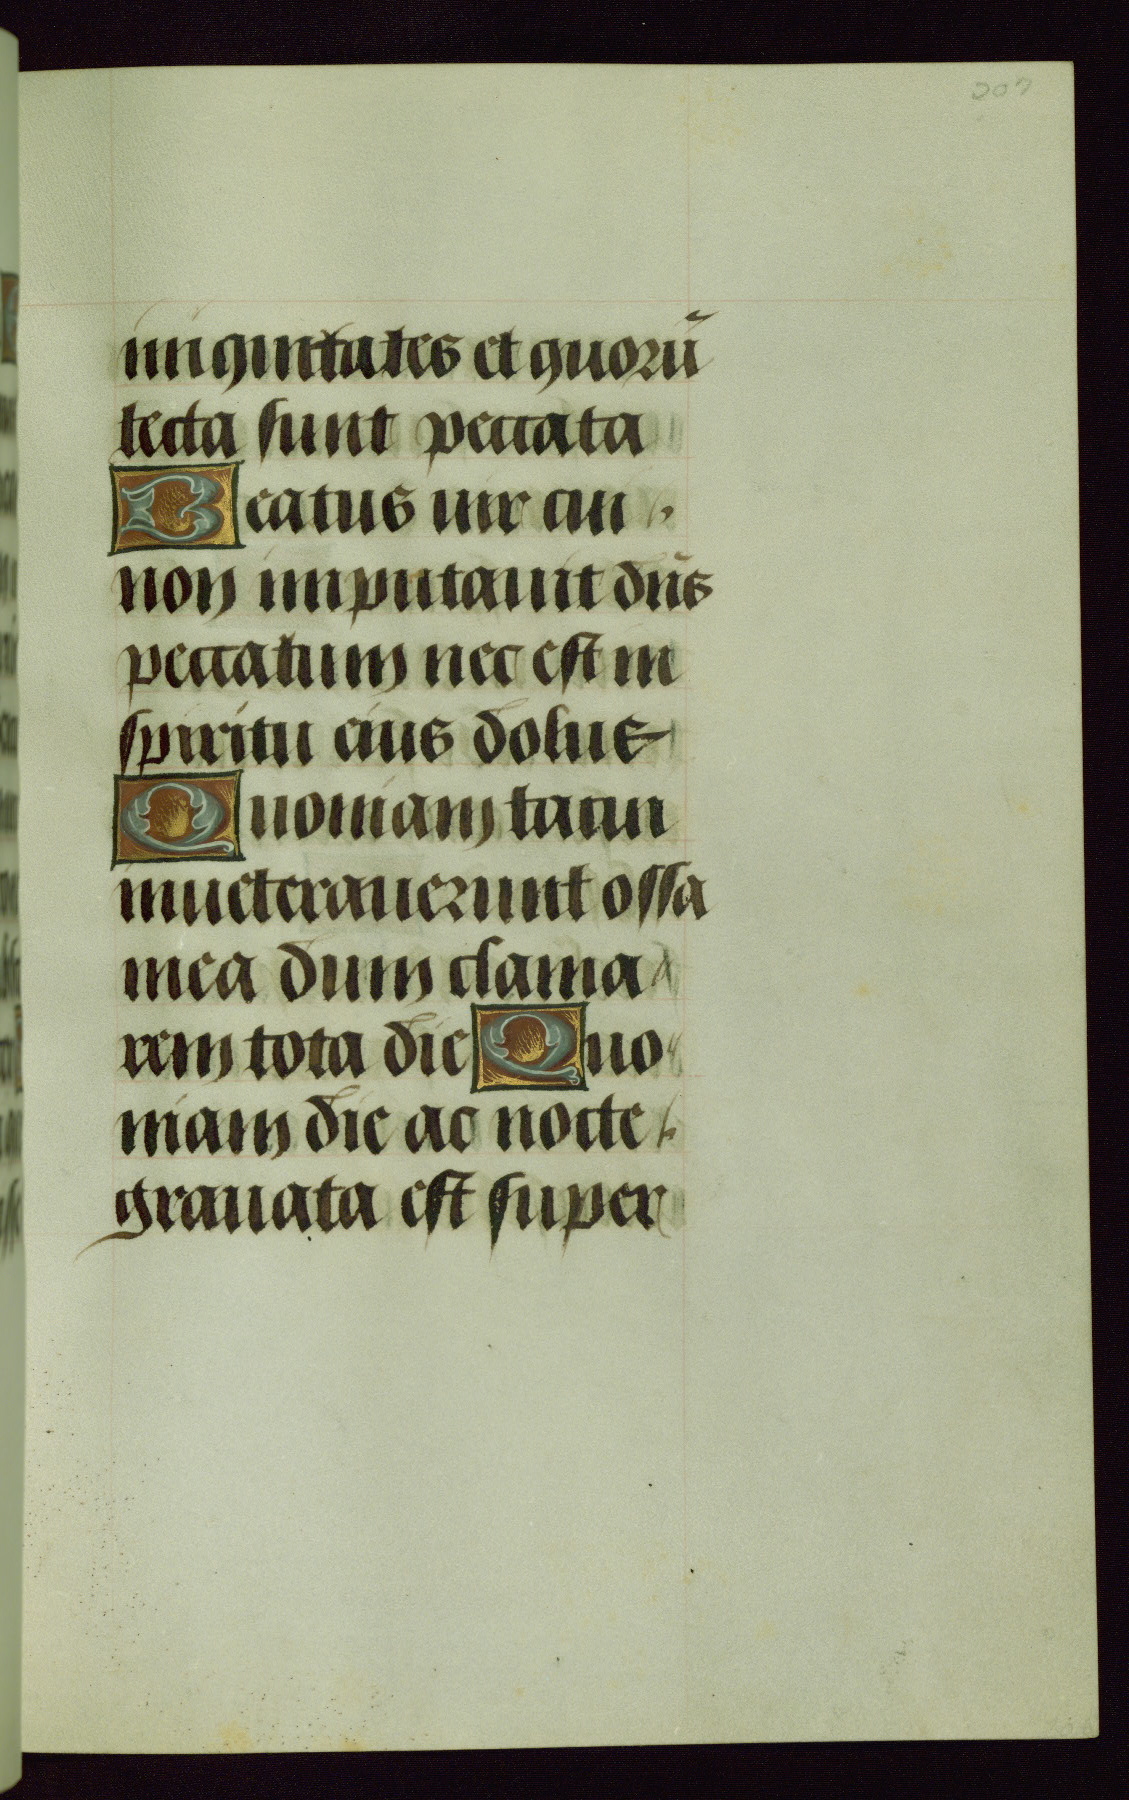 207
iniquitates et quorū
tecta sunt peccata
Beatus uir cui
non imputauit dn̄s
peccatum nec est in
spiritu eius dolus
Quoniam tacui
inueterauerunt ossa
mea dum clama
rem tota die Quo
niam die ac nocte
grauata est super